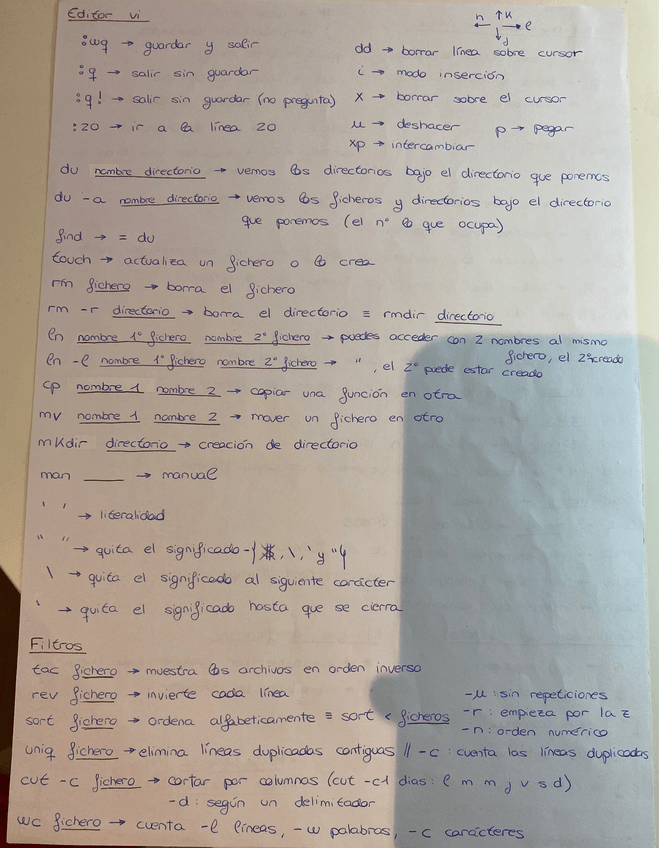 Editor vi
n ↑K → l
← ↓j
:wq → guardar y salir
dd → borrar línea sobre cursor
:q → salir sin guardar
i → modo inserción
:q! → salir sin guardar (no pregunta)
x → borrar sobre el cursor
:20 → ir a la línea 20
u → deshacer p → pegar
xp → intercambiar
du nombre directorio → vemos los directorios bajo el directorio que ponemos
du -a nombre directorio → vemos los ficheros y directorios bajo el directorio
que ponemos (el nº lo que ocupa)
find → = du
touch → actualiza un fichero o lo crea
rm fichero → borra el fichero
rm -r directorio → borra el directorio ≡ rmdir directorio
ln nombre 1º fichero nombre 2º fichero → puedes acceder con 2 nombres al mismo
fichero, el 2º creado
ln -l nombre 1º fichero nombre 2º fichero → " , el 2º puede estar creado
cp nombre 1 nombre 2 → copiar una función en otra
mv nombre 1 nombre 2 → mover un fichero en otro
mkdir directorio → creación de directorio
man ____ → manual
' ' → literalidad
" " → quita el significado -{ $, \, ' y "{
\ → quita el significado al siguiente carácter
' → quita el significado hasta que se cierra
Filtros
tac fichero → muestra los archivos en orden inverso
rev fichero → invierte cada línea
-u : sin repeticiones
sort fichero → ordena alfabeticamente ≡ sort < ficheros
-r : empieza por la z
-n : orden numérico
uniq fichero → elimina líneas duplicadas contiguas // -c : cuenta las líneas duplicadas
cut -c fichero → cortar por columnas (cut -c1 dias : l m m j v s d)
-d : según un delimitador
wc fichero → cuenta -l líneas, -w palabras, -c carácteres